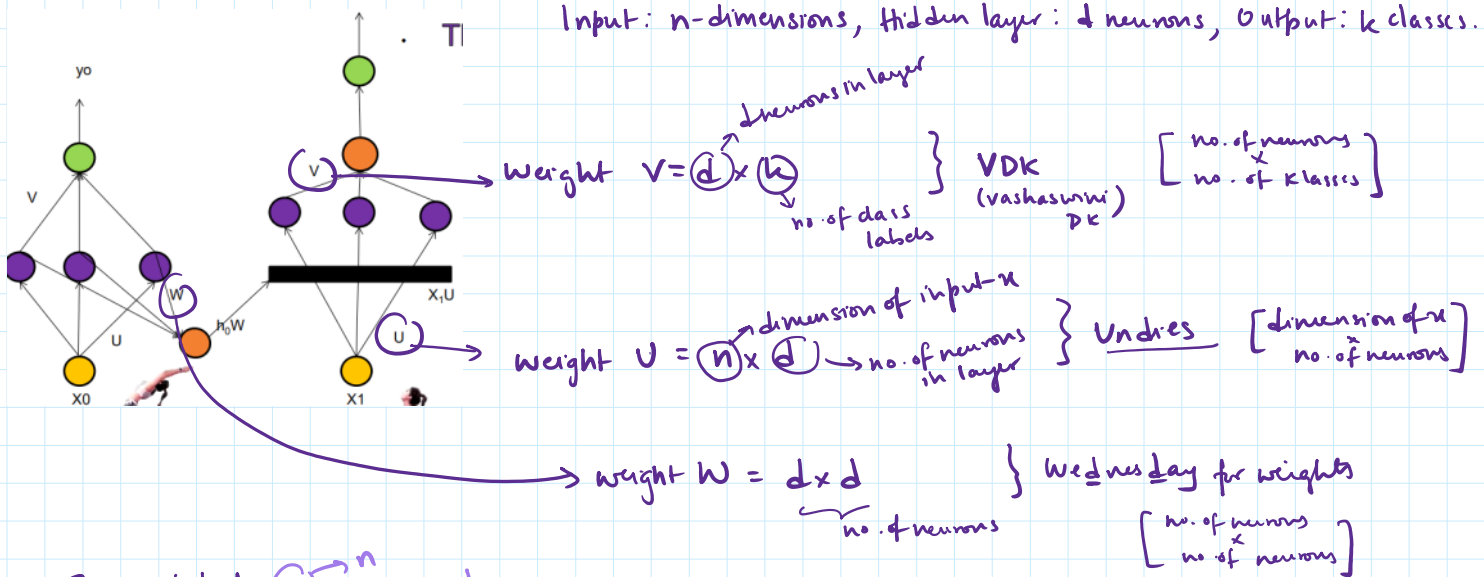 Input: n-dimensions, Hidden layer: d neurons, Output: k classes.
yo
V
W
U
h₀W
X0
V
X₁U
U
X1
d neurons in layer
Weight V = d x k
no. of class
labels
} VDK
(vashaswini)
DK
[no. of neurons
x
no. of klasses]
dimension of input-x
weight U = n x d → no. of neurons
in layer
} Undies
[dimension of x
x
no. of neurons]
weight W = d x d
no. of neurons
} Wednesday for weights
[no. of neurons
x
no. of neurons]
n